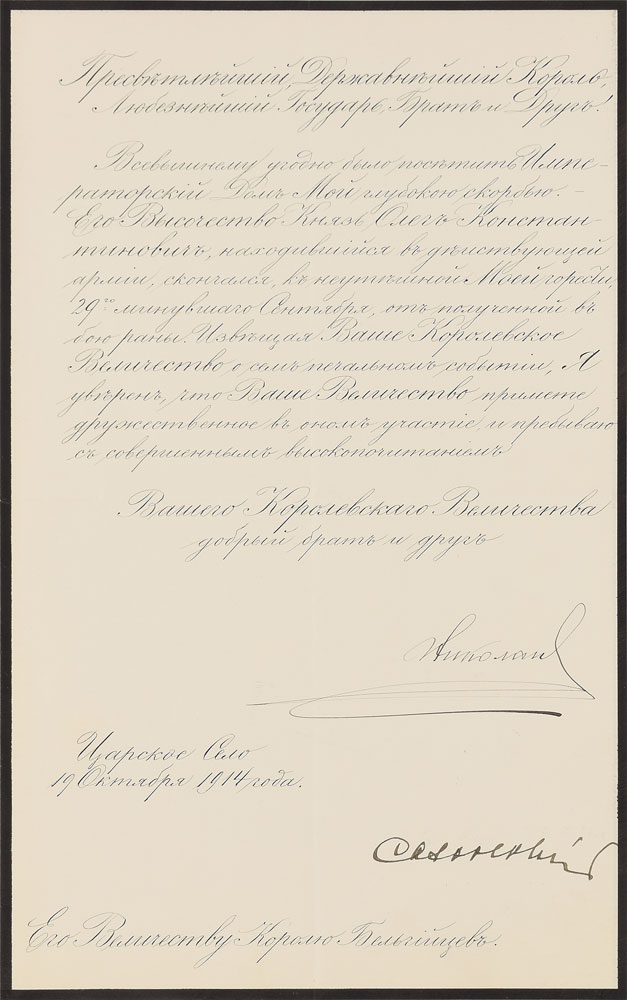 Пресвѣтлѣйшій, Державнѣйшій Король,
Любезнѣйшій Государь, Братъ и Другъ!
Всевышнему угодно было посѣтить Импе-
раторскій Домъ Мой глубокою скорбью. –
Его Высочество Князь Олегъ Констан-
тиновичъ, находившійся въ дѣйствующей
арміи, скончался, къ неутѣшной Моей горести,
29го минувшаго Сентября, отъ полученной въ
бою раны. Извѣщая Ваше Королевское
Величество о семъ печальномъ событіи, Я
увѣренъ, что Ваше Величество примете
дружественное въ ономъ участіе, и пребываю
съ совершеннымъ высокопочитаніемъ
Вашего Королевскаго Величества
добрый братъ и другъ
Николай
Царское Село
19 Октября 1914 года.
Его Величеству Королю Бельгійцевъ.